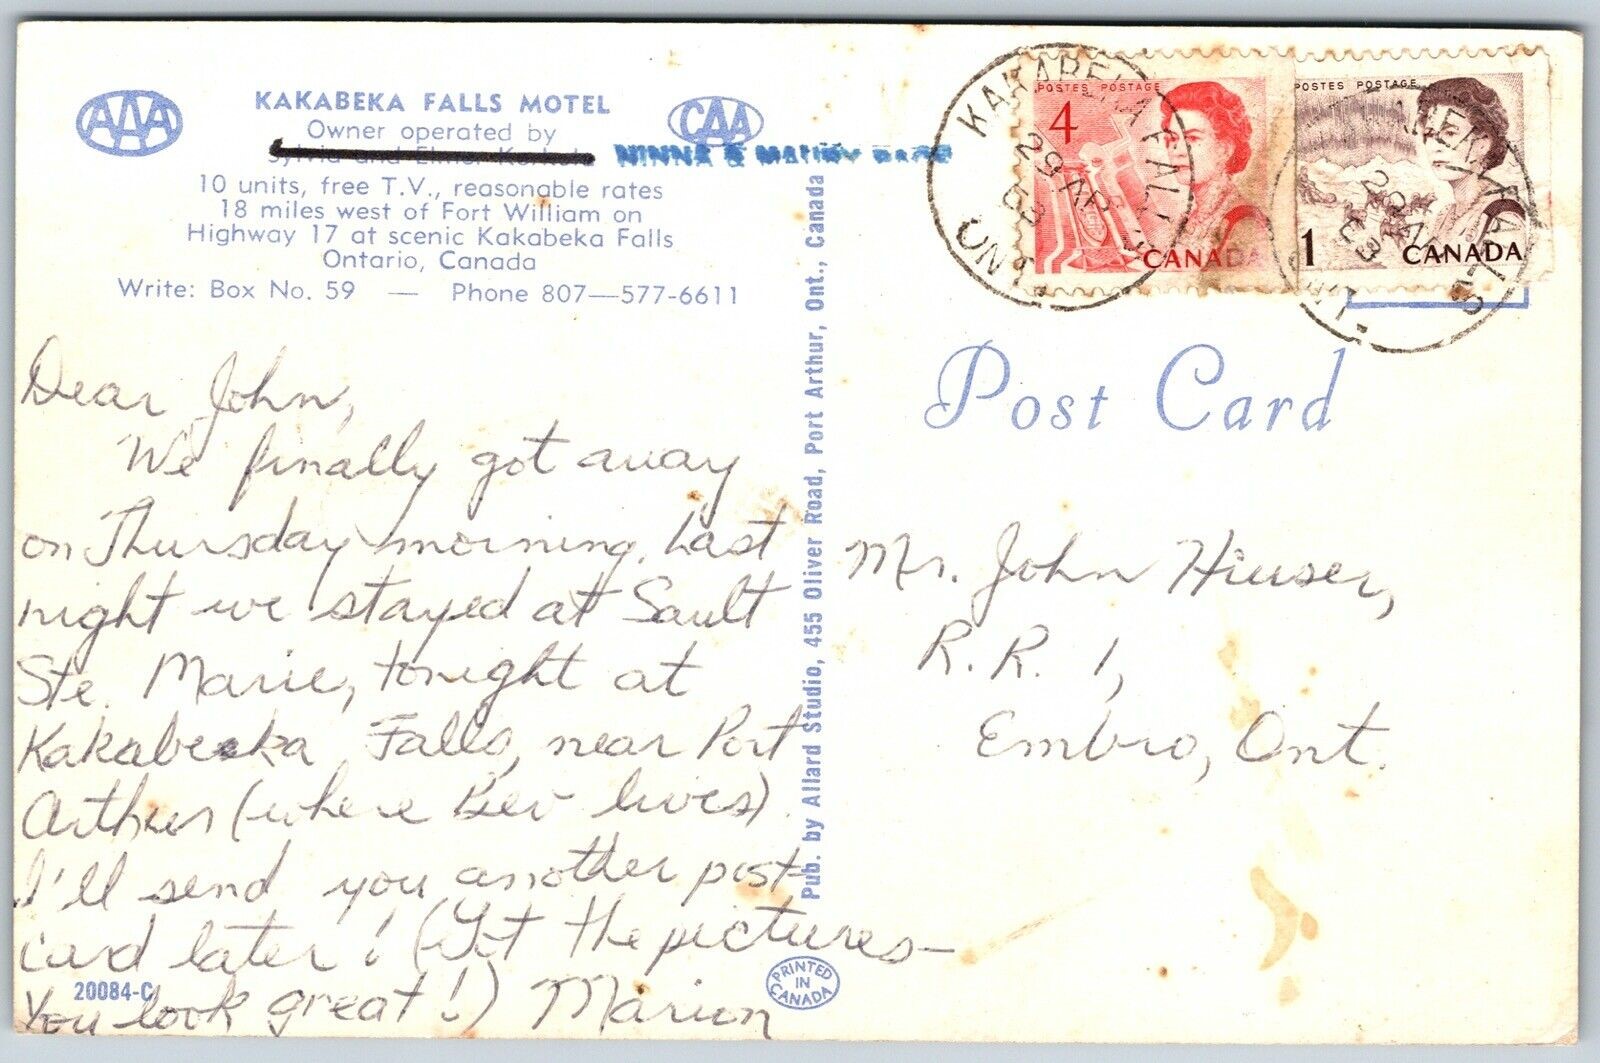 AAA
KAKABEKA FALLS MOTEL
CAA
Owner operated by
Sylvia and Elmer
NINNA &
10 units, free T.V., reasonable rates
18 miles west of Fort William on
Highway 17 at scenic Kakabeka Falls
Ontario, Canada
Write: Box No. 59 — Phone 807—577-6611
Dear John,
We finally got away
on Thursday morning. Last
night we stayed at Sault
Ste. Marie, tonight at
Kakabeka Falls, near Port
Arthur (where Bev lives).
I'll send you another post-
card later! (Got the pictures—
You look great!) Marion
20084-C
PRINTED IN CANADA
Pub. by Allard Studio, 455 Oliver Road, Port Arthur, Ont., Canada
KAKABEKA FALLS
ONT.
POSTES POSTAGE
4
CANADA
POSTES POSTAGE
1
CANADA
Post Card
Mr. John Hiuser,
R. R. 1,
Embro, Ont.